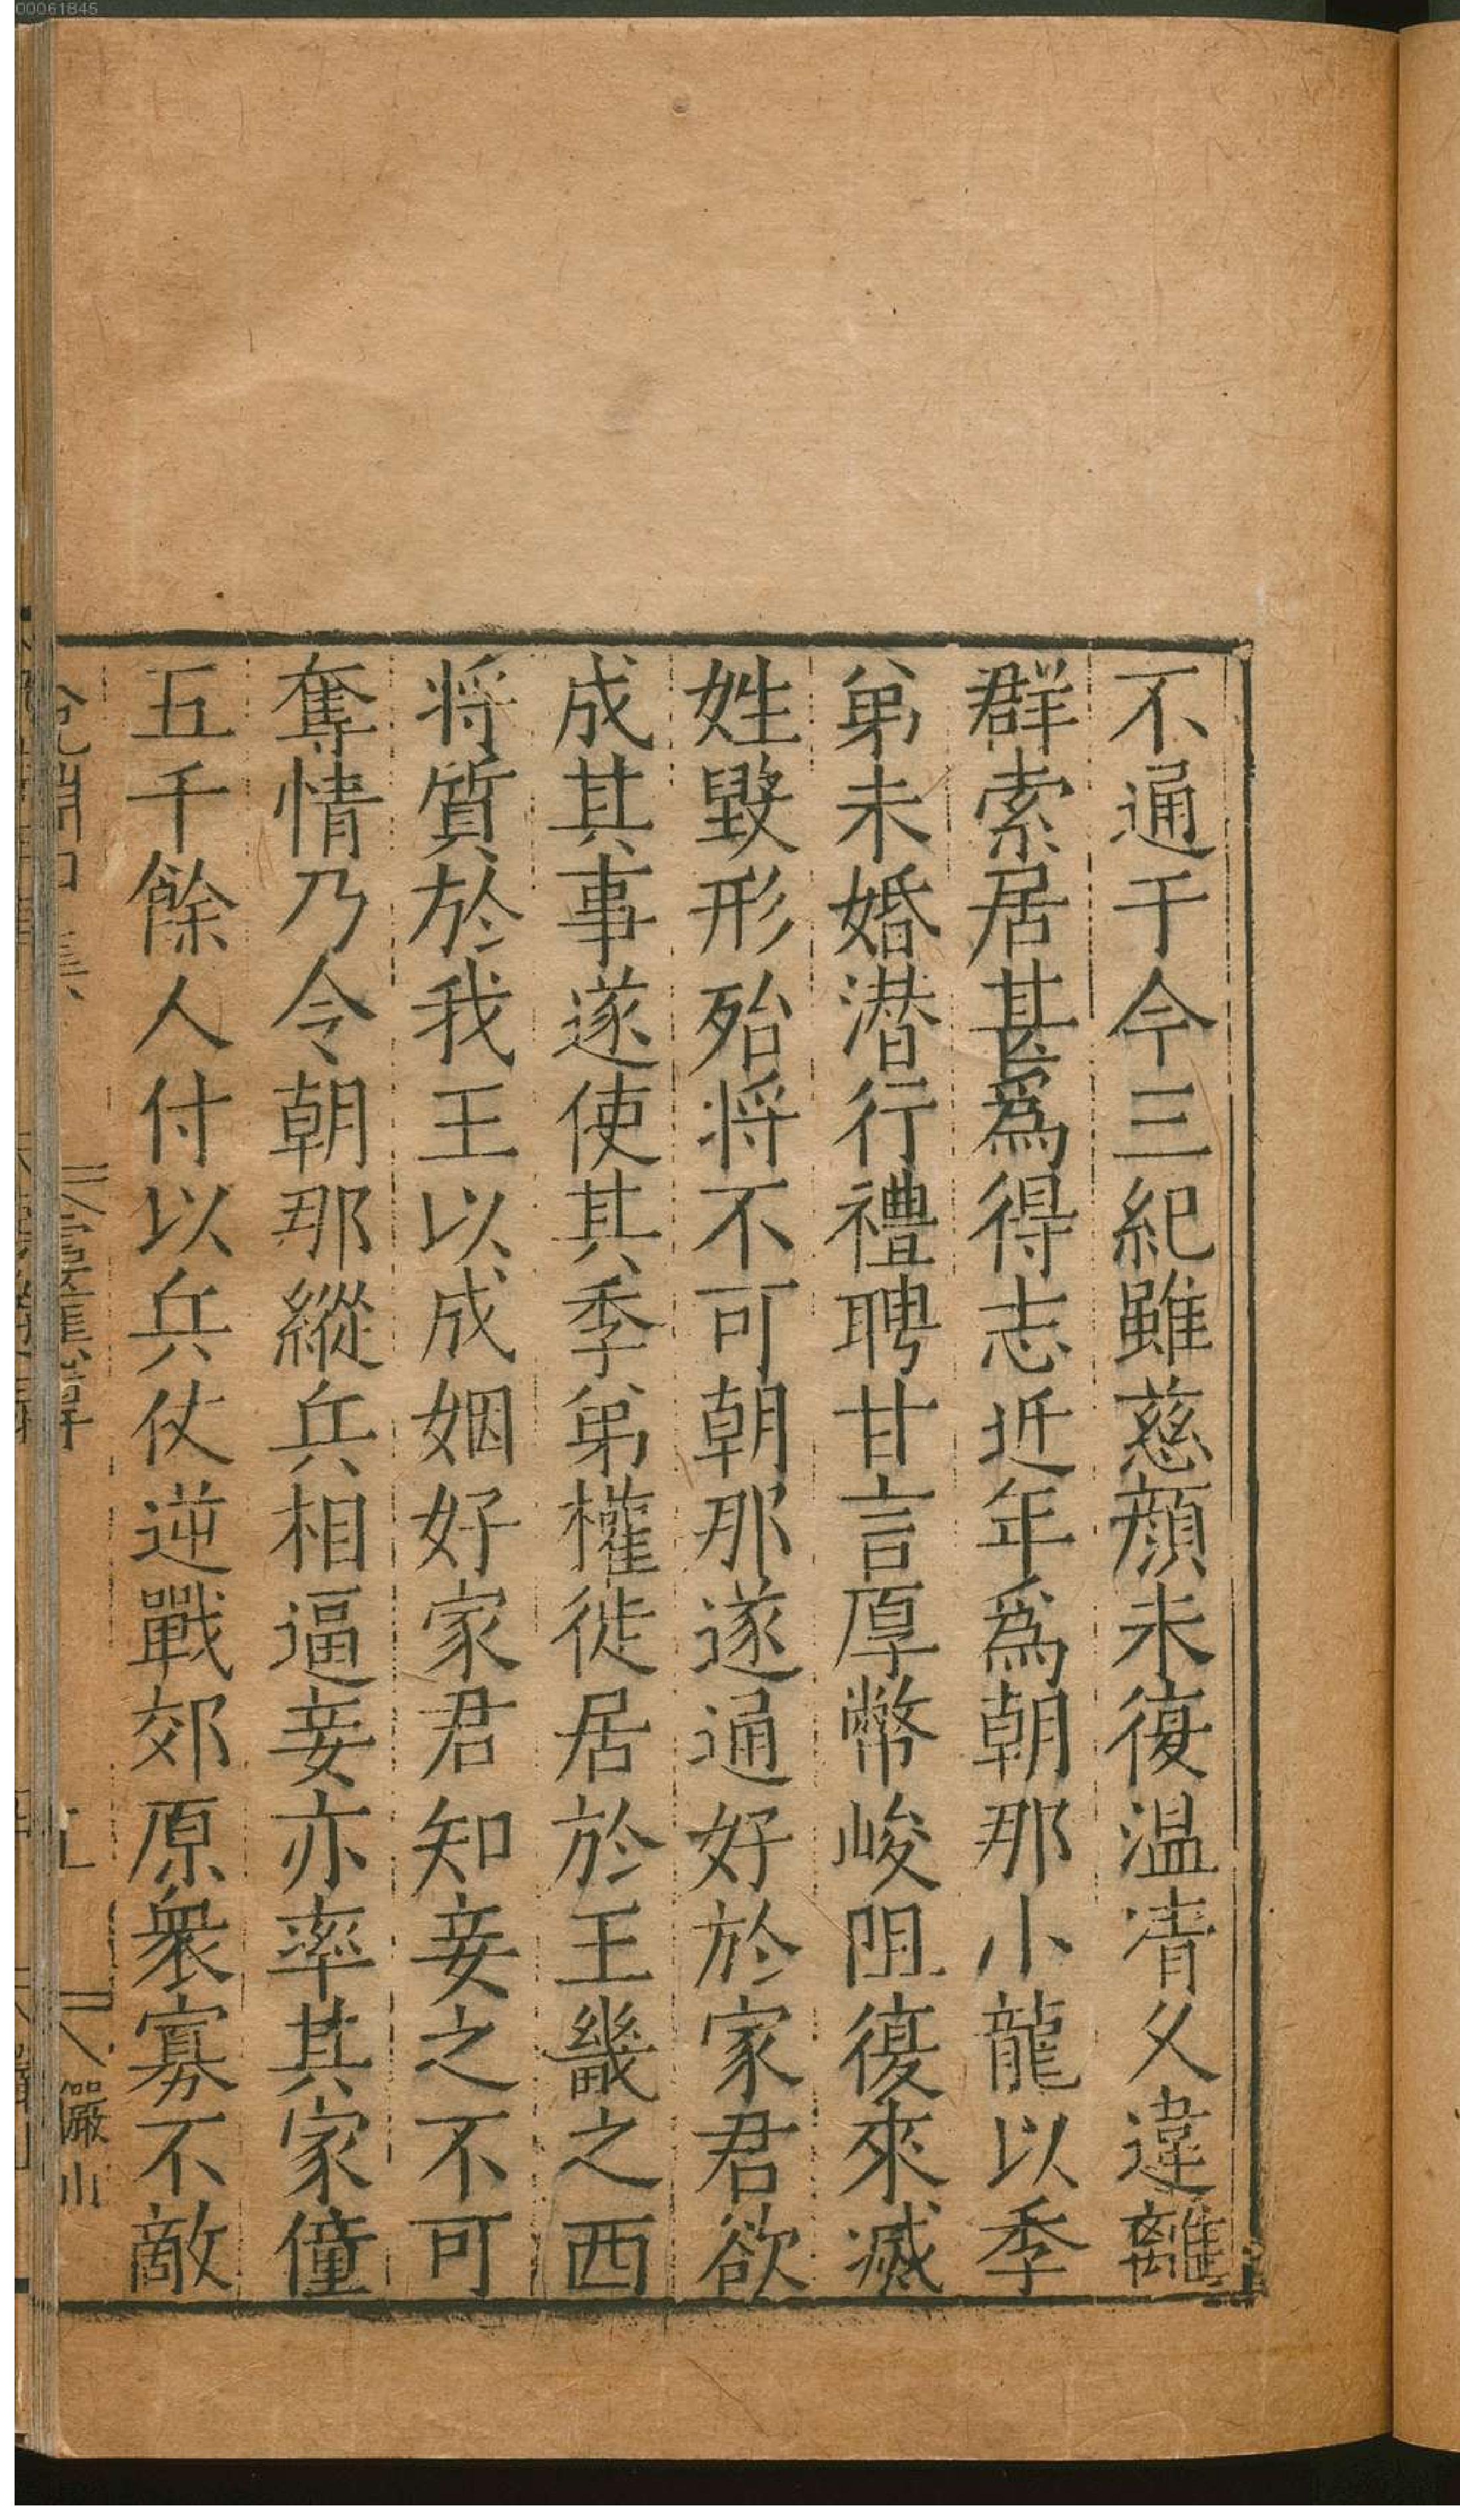 00061845
不通于今三紀雖慈顔未復温凊久違離
群索居甚爲得志近年爲朝那小龍以季
弟未婚潜行禮聘甘言厚幣峻阻復來滅
姓毀形殆将不可朝那遂通好於家君欲
成其事遂使其季弟權徙居於王畿之西
将質於我王以成姻好家君知妾之不可
奪情乃令朝那縱兵相逼妾亦率其家僮
五千餘人付以兵仗逆戰郊原衆寡不敵
儼山